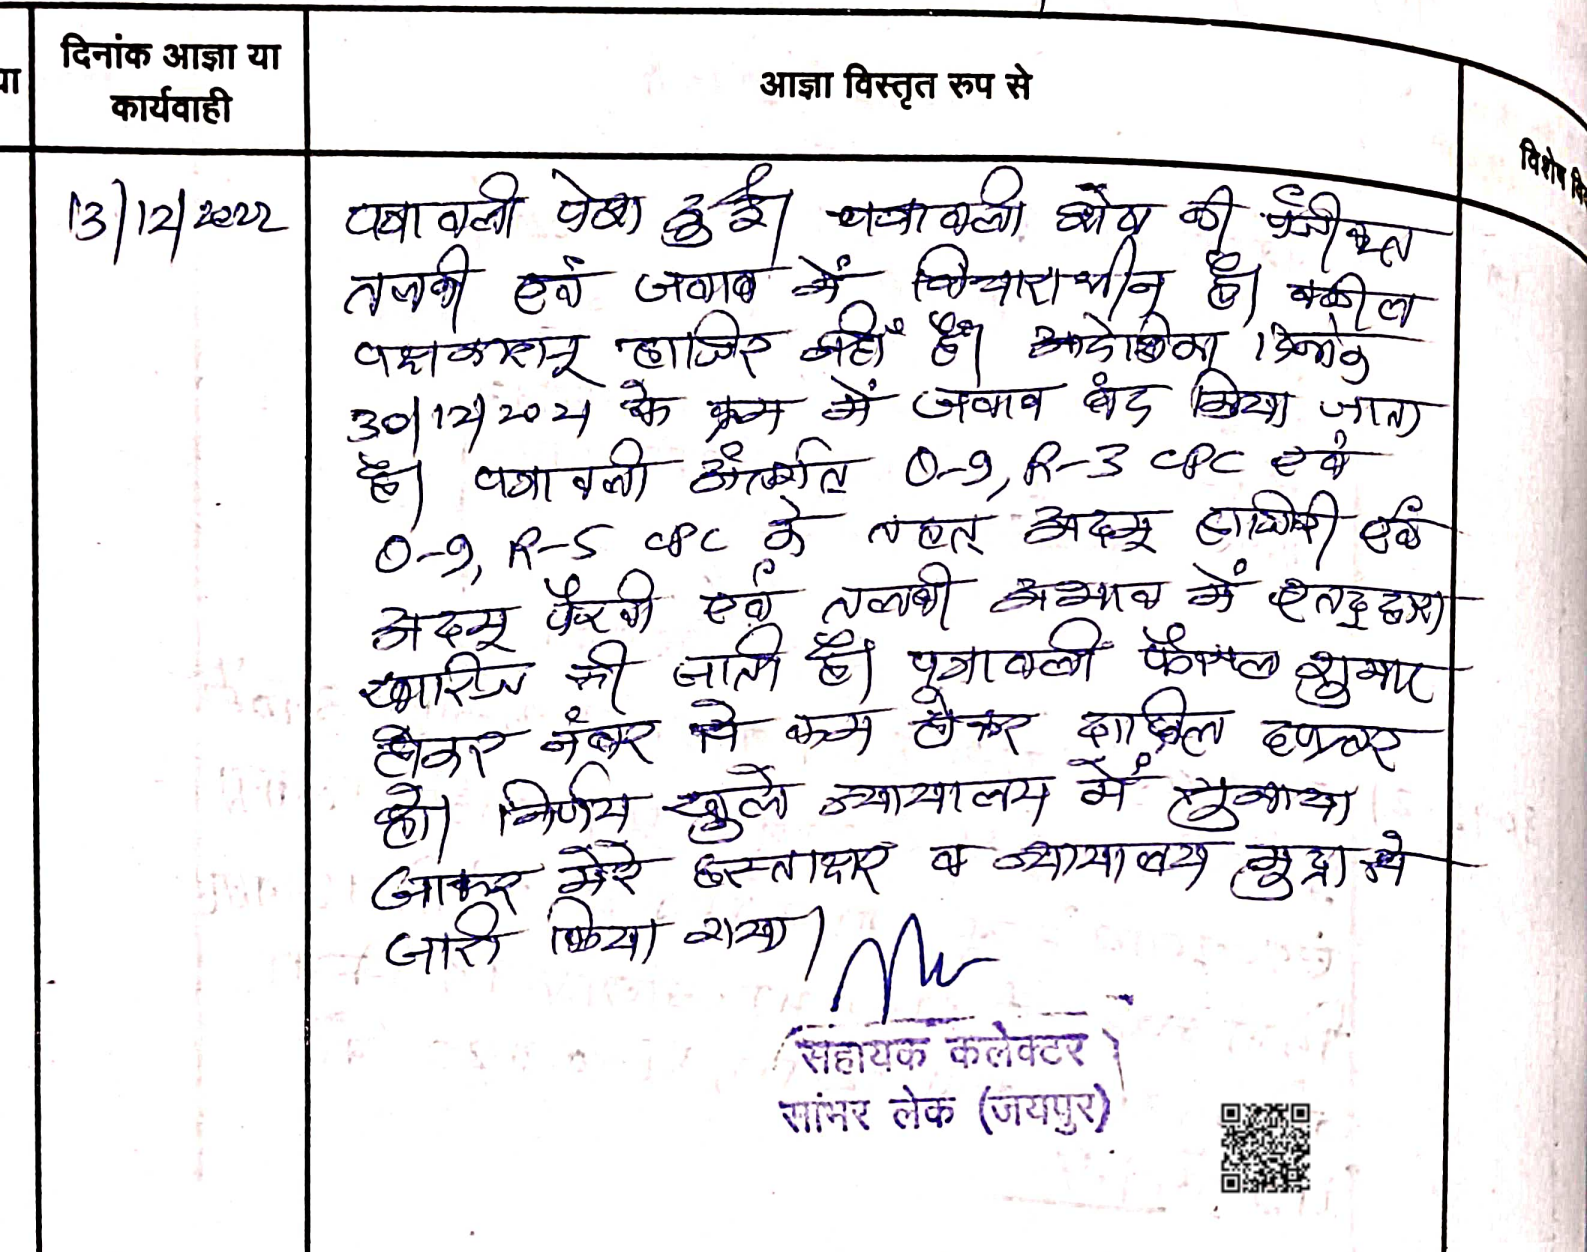 दिनांक आज्ञा या
कार्यवाही
आज्ञा विस्तृत रुप से
विशेष
13/12/2022
पत्रावली पेश हुई। पत्रावली शेष की
तलबी एवं जवाब में विचाराधीन है। वकील
पक्षकारान् हाजिर नहीं है। आदेशिका दिनांक
30/12/2021 के क्रम में जवाब बंद किया जाता
है। पत्रावली अंतर्गत O-9, R-3 CPC एवं
O-9, R-5 CPC के तहत् अदम् हाजिरी एवं
अदम् पैरवी एवं तलबी अभाव में एतद् द्वारा
खारिज की जाती है। पत्रावली फैसल शुमार
होकर नंबर से कम होकर दाखिल दफ्तर
हो। निर्णय खुले न्यायालय में सुनाया
जाकर मेरे हस्ताक्षर व न्यायालय मुद्रा से
जारी किया गया।
सहायक कलेक्टर
सांभर लेक (जयपुर)